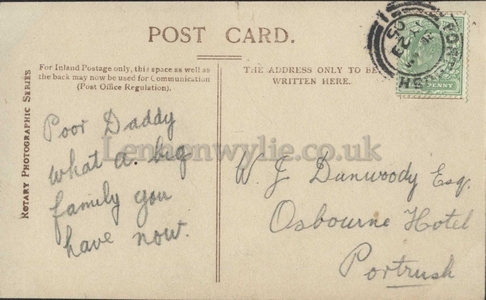 POST CARD.
For Inland Postage only, this space as well as
the back may now be used for Communication
(Post Office Regulation).
THE ADDRESS ONLY TO BE
WRITTEN HERE.
ROTARY PHOTOGRAPHIC SERIES
Poor Daddy
what a big
family you
have now.
W. J Dunwoody Esq.
Osbourne Hotel
Portrush
PENNY
PORTRUSH
Lennonwylie.co.uk